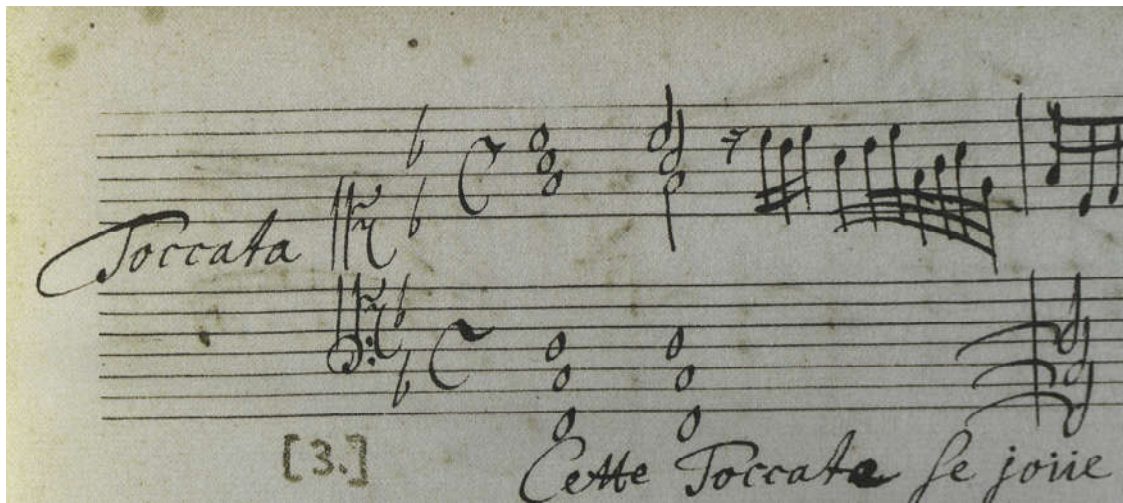 Toccata
[3.]
Cette Toccata se joüe